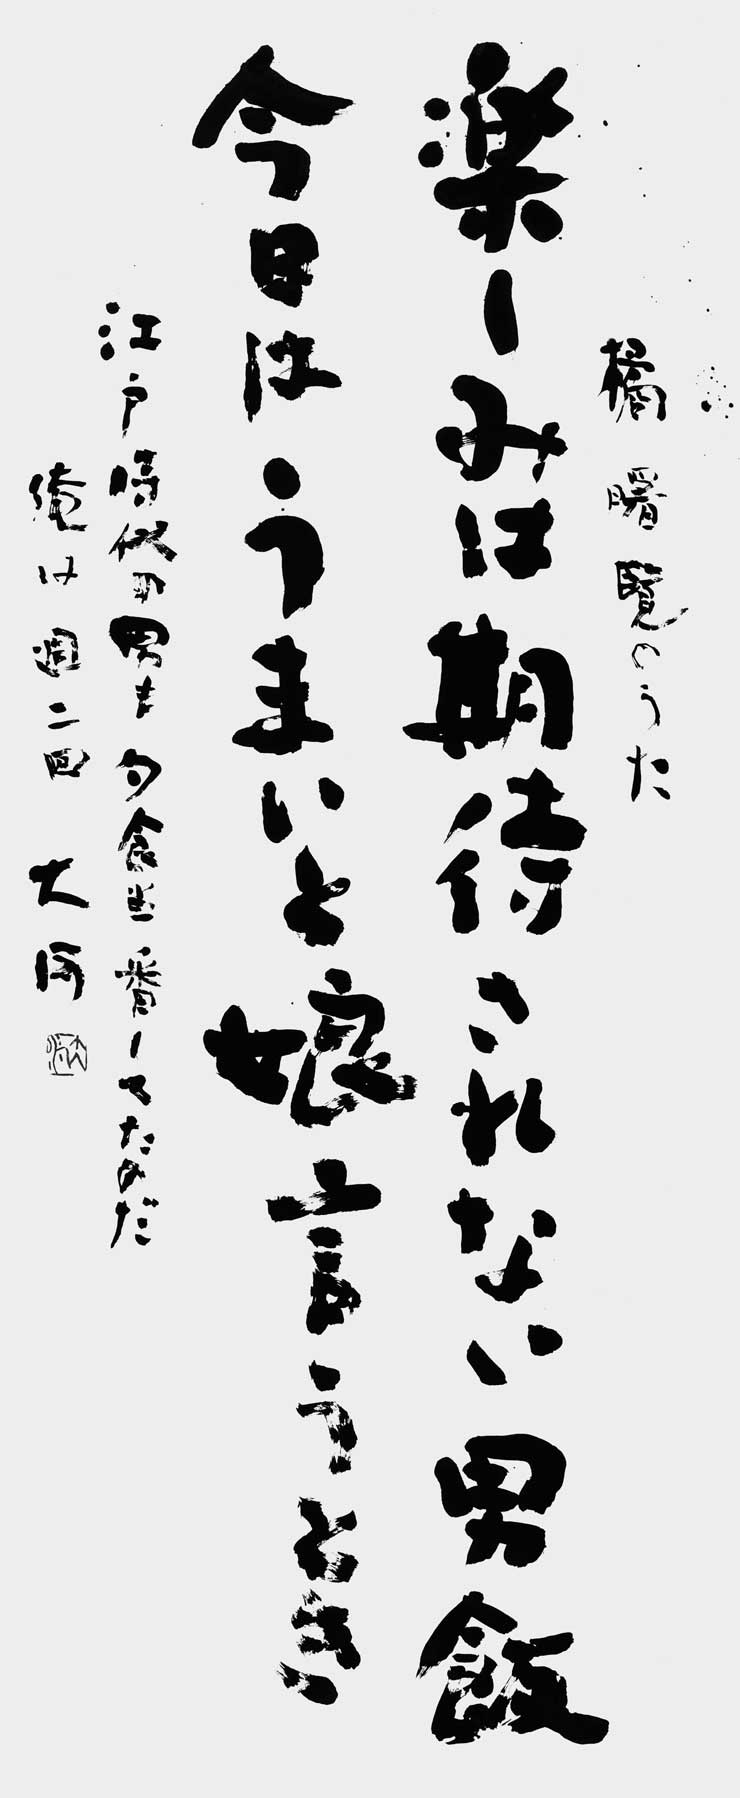 橘曙覧のうた
楽しみは期待されない男飯
今日はうまいと娘言うとき
江戸時代の男も夕食当番してたのだ
俺は週二回 大河